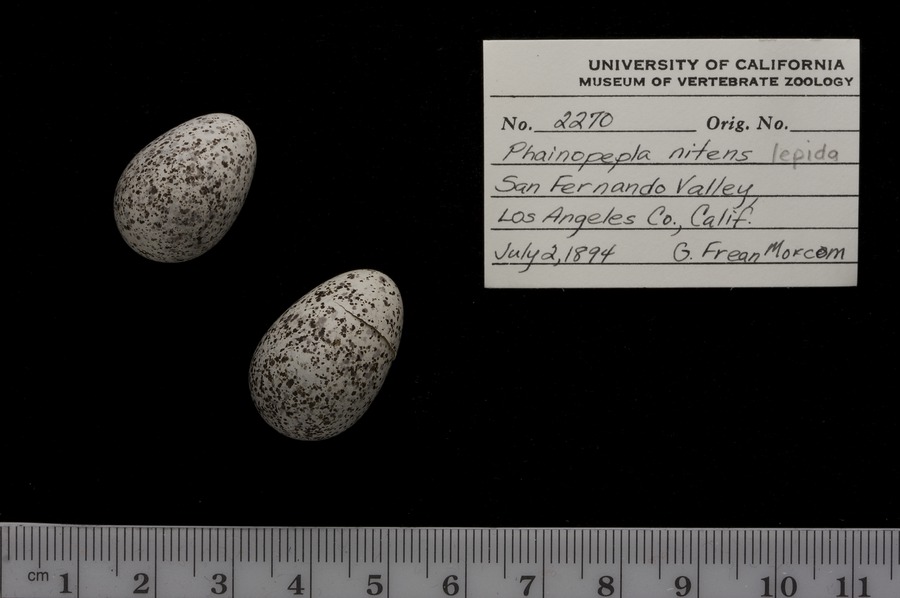 UNIVERSITY OF CALIFORNIA
MUSEUM OF VERTEBRATE ZOOLOGY
No. 2270 Orig. No.
Phainopepla nitens lepida
San Fernando Valley,
Los Angeles Co., Calif.
July 2, 1894 G. Frean Morcom
cm 1 2 3 4 5 6 7 8 9 10 11